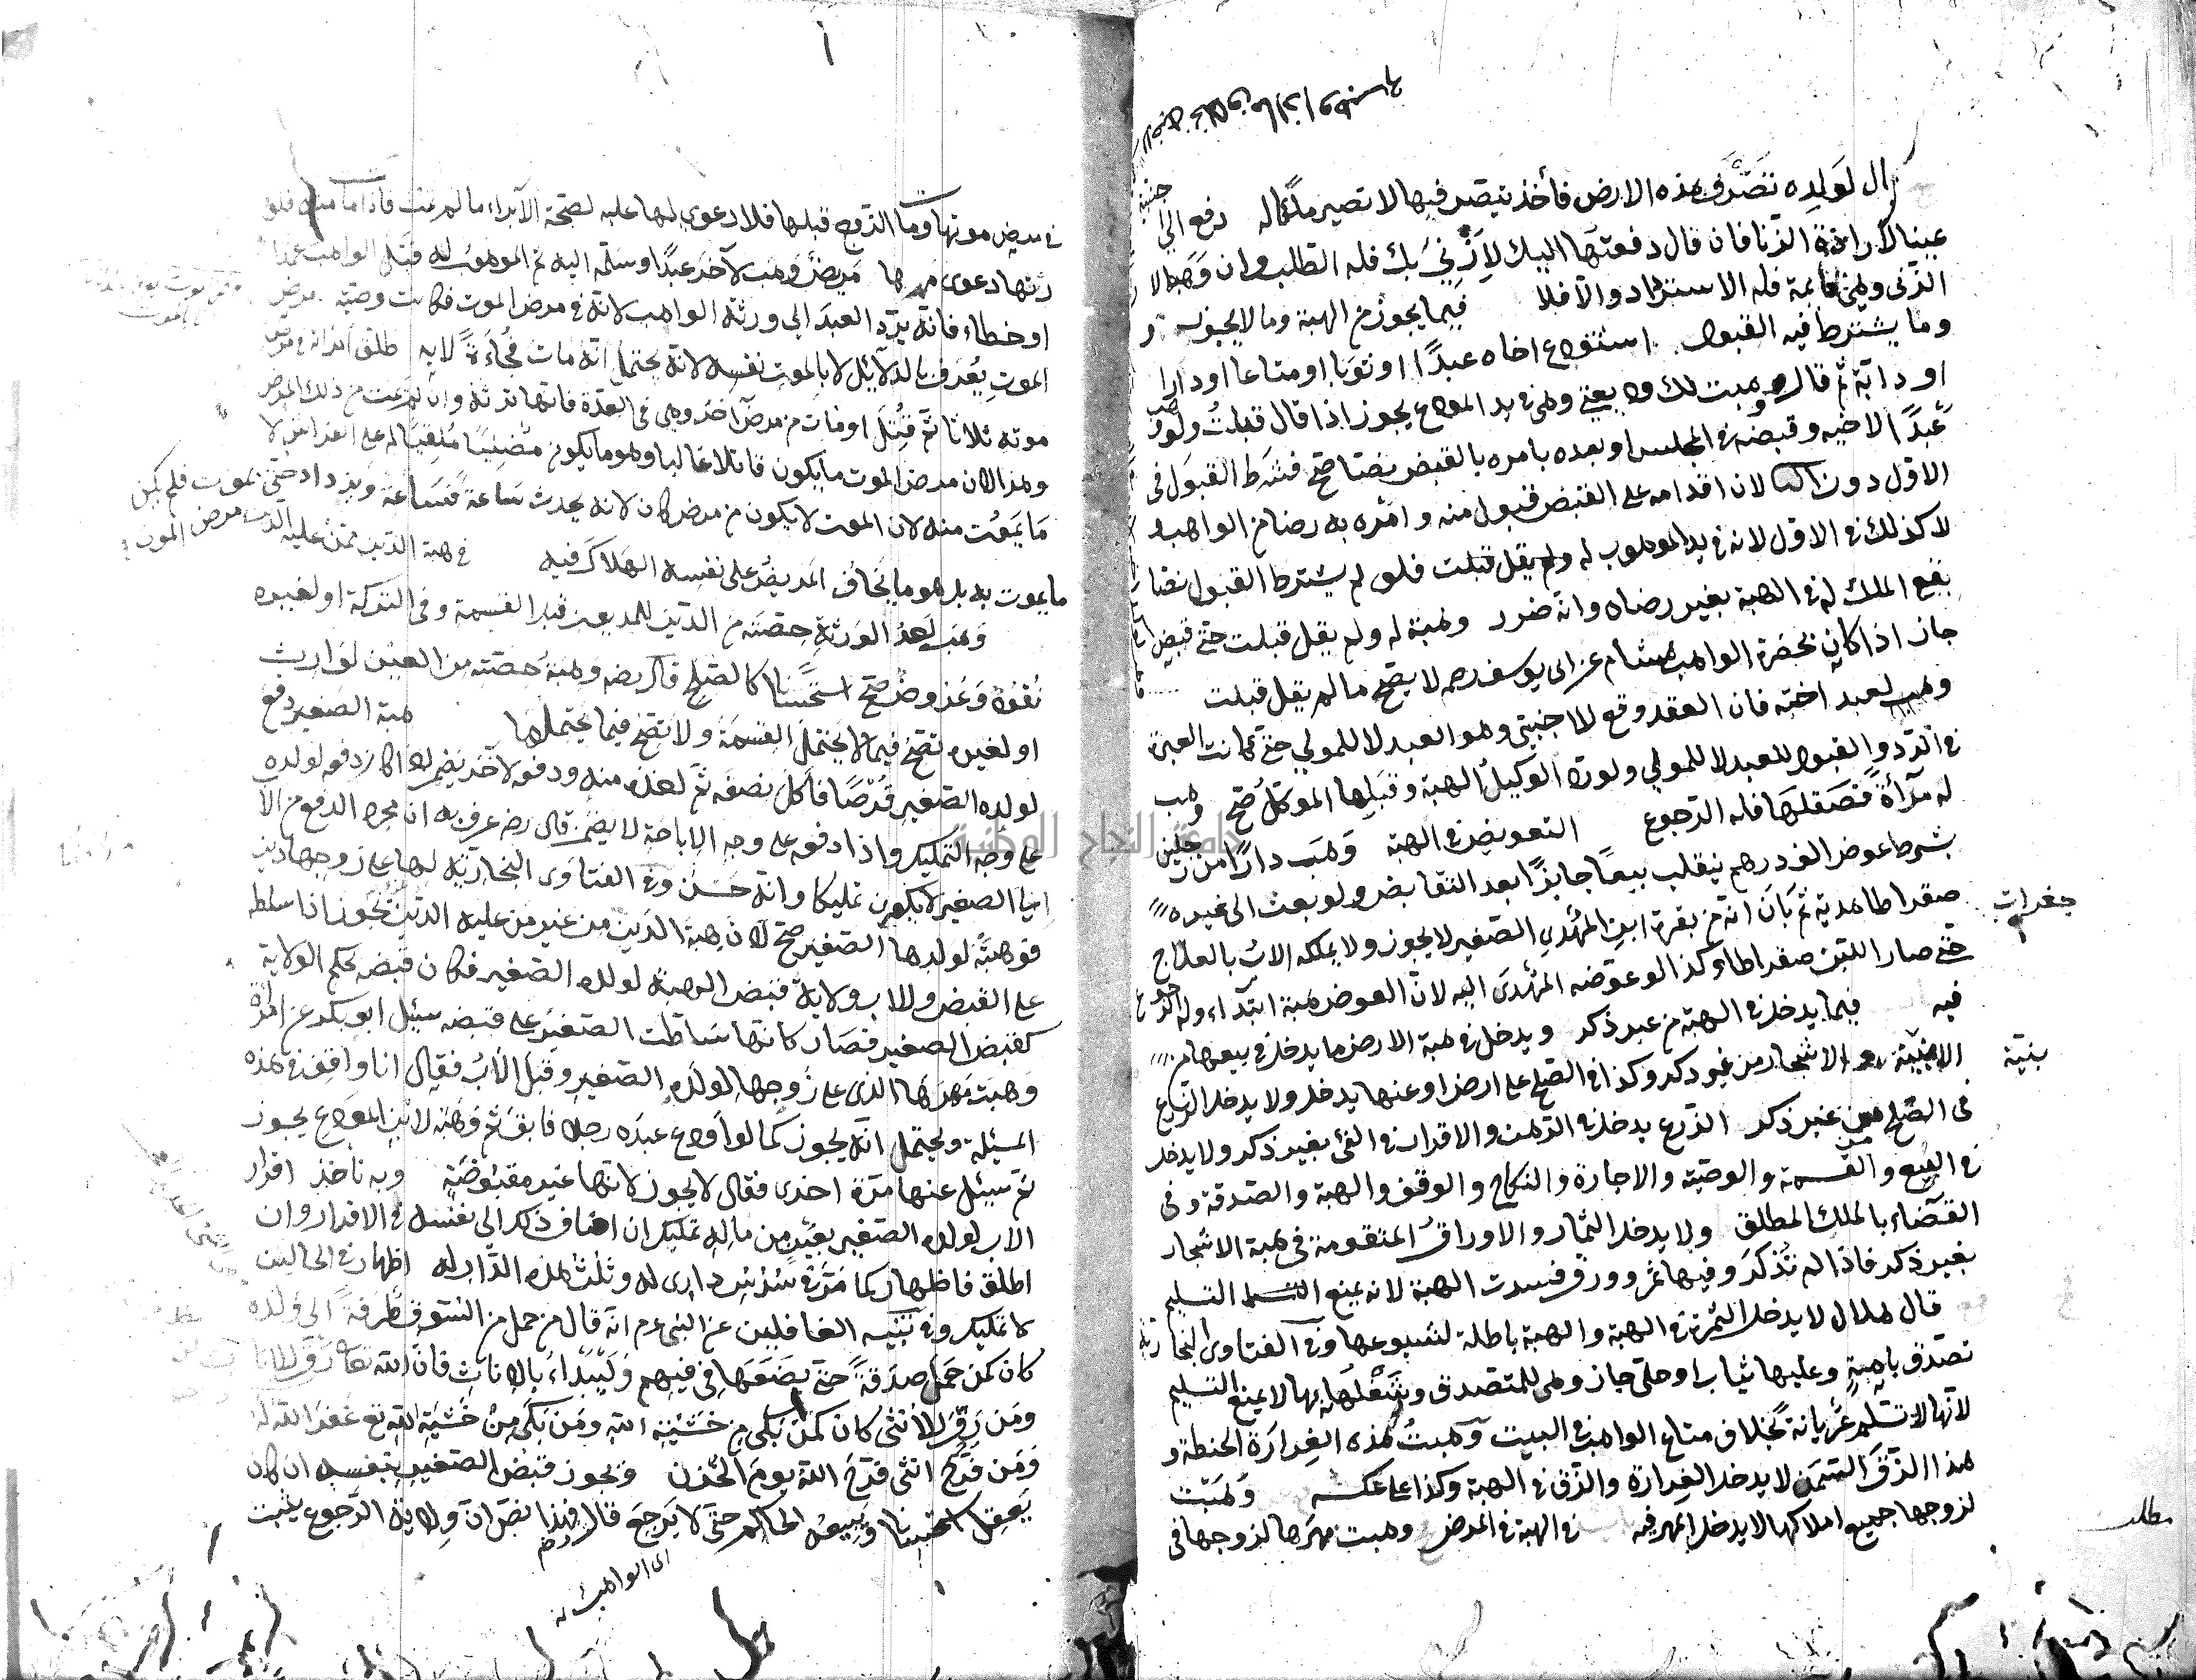 قال لولده تصرف في هذه الارض فأخذ يتصرف فيها لا تصير ملكا له دفع الى
عينا لارادة الزنا فان قال دفعتها اليك لأزني بك فله الطلب وان وهبها لا
الزنى وهي قائمة فله الاسترداد والا فلا فيما يجوز من الهبة وما لا يجوز
وما يشترط فيه القبول استودع اخاه عبدا او ثوبا او متاعا او دارا
او دابة ثم قال وهبت لك وديعتي وهي في يد المودع يجوز اذا قال قبلت ولو وهب
عبدا لاخيه وقبضه في المجلس او بعده بامره بالقبض نصا صح فشرط القبول في
الاول دون لان اقدامه على القبض قبول منه وامره به رضا من الواهب
لا كذلك في الاول لانه في يد الموهوب له ولم يقل قبلت فلو لم يشترط القبول نصا
يقع الملك له في الهبة بغير رضاه وانه ضرر وهبة له ولم يقل قبلت حتى قبض
جاز اذا كان بحضرة الواهب هشام عن ابي يوسف رحمه لا يصح ما لم يقل قبلت
وهب لعبد اخته فان العقد وقع للاجنبي وهو العبد لا للمولى حتى كانت العبرة
في الرد والقبول للعبد لا للمولى ولو رد الوكيل الهبة وقبلها الموكل صح وهب
له مرآة فصقلها فله الرجوع التعويض في الهبة وهب دارا من رجلين
بشرط عوض الف درهم ينقلب بيعا جايزا بعد التقابض ولو بعث الى غيره
جغرات
صقراطا هدية ثم بان انه من بقرة ابن المهدي الصغير لا يجوز ولا يملكه الاب بالعلاج
حتى صار اللبن صقراطا وكذا لو عوضه المهدى اليه لان العوض هبة ابتداء وله الرجوع
فيه فيما يدخل في الهبة من غير ذكر ويدخل في هبة الارض ما يدخل في بيعها من
بنية
الابنية والاشجار من غير ذكر وكذا في الصلح على ارض او عنها يدخل ولا يدخل الزرع
في الصلح من غير ذكر الزرع يدخل في الرهن والاقرار في الفئ بغير ذكر ولا يدخل
في البيع والقسمة والوصية والاجارة والنكاح والوقف والهبة والصدقة وفي
القضاء بالملك المطلق ولا يدخل الثمار والاوراق المتقومة في هبة الاشجار
بغير ذكر فاذا لم تذكر وفيها ثمر وورق فسدت الهبة لانه يمنع التسليم
قال هلال لا يدخل الثمرة في الهبة والهبة باطلة لشيوعها وفي الفتاوى البخارية
تصدق بامة وعليها ثياب او حلي جاز وهي للمتصدق وشغلها بها لا يمنع التسليم
لانها لا تسلم عريانة بخلاف متاع الواهب في البيت وهبت هذه الغرارة الحنطة و
هذا الزق السمن لا يدخل الغرارة والزق في الهبة وكذا على عكسه وهبت
مطلب
لزوجها جميع املاكها لا يدخل المهر فيه في الهبة في المرض وهبت مهرها لزوجها في
في مرض موتها ومات الزوج قبلها فلا دعوى لها عليه لصحة الابراء ما لم تمت فاذا ماتت منه فلو
رثتها دعوى مهرها مريض وهب لآخر عبدا وسلمه اليه ثم الموهوب له قتل الواهب عمدا
او خطاء فانه يرد العبد الى ورثة الواهب لانه في مرض الموت فكانت وصية مرض
الموت يعرف بالدلائل لا بالموت نفسه لانه يحتمل انه مات فجاءة لا به طلق امراته في مرض
موته ثلاثا ثم قتل او مات من مرض آخر وهي في العدة فانها ترثه وان لم يمت من ذلك المرض
وهذا لان مرض الموت ما يكون قاتلا غالبا وهو ما يكون مضنيا ملقيا له على الفراش لا
ما يموت منه لان الموت لا يكون من مرض كان لانه يحدث ساعة فساعة ويزداد حتى يموت فلم يكن
مرض الموت
ما يموت به بل هو ما يخاف المريض على نفسه الهلاك فيه في هبة الدين ممن عليه الدين
وهب احد الورثة حصته من الدين للمديون قبل القسمة وفي التركة او لغيره
نقود وعروض صح استحسانا كالصلح قال رضه وهبة حصته من العين لوارث
او لغيره تصح فيما لا يحتمل القسمة ولا تصح فيما يحتملها هبة الصغير دفع
لولده الصغير قرصا فاكل نصفه ثم اخذه منه ودفعه لآخر يضمن اذا كان دفعه لولده
على وجه التمليك واذا دفعه على وجه الاباحة لا يضمن قال رضه عرف به ان مجرد الدفع من الاب
الى الصغير لا يكون تمليكا وانه حسن وفي الفتاوى البخارية لها على زوجها دين
فوهبته لولدها الصغير صح لان هبة الدين من غير من عليه الدين تجوز اذا سلطه
على القبض وللاب ولاية قبض الهبة لولده الصغير فكان قبضه بحكم الولاية
كقبض الصغير فصار كانها سلطت الصغير على قبضه سئل ابو بكر عن امراة
وهبت مهرها الذي على زوجها لولده الصغير وقبل الاب فقال انا واقف في هذه
المسئلة ويحتمل انه يجوز كما لو اودع عبده رجلا فابق ثم وهبه لابن المودع يجوز
ثم سئل عنها مرة اخرى فقال لا يجوز لانها غير مقبوضة وبه ناخذ اقرار
الاب لولده الصغير بعين من ماله تمليك ان اضاف ذلك الى نفسه في الاقرار وان
اطلق فاظهار كما مر في سدس داري له وثلث هذه الدار له اظهار في الحالين
لا تمليك وفي تنبيه الغافلين عن النبي عم انه قال من حمل من السوق طرفة الى ولده
كان كمن حمل صدقة حتى يضعها في فيهم وليبدأ بالاناث فان الله تعالى رق للاناث
ومن رق للانثى كان كمن بكى من خشية الله ومن بكى من خشية الله تع غفر الله له
ومن فرح انثى فرح الله يوم الحزن ويجوز قبض الصغير بنفسه ان كان
يعقل استحسانا ويبيعه الحاكم حتى لا يرجع قال رضه فهذا نص ان ولاية الرجوع يثبت
اى الواهب
جامعة النجاح الوطنية